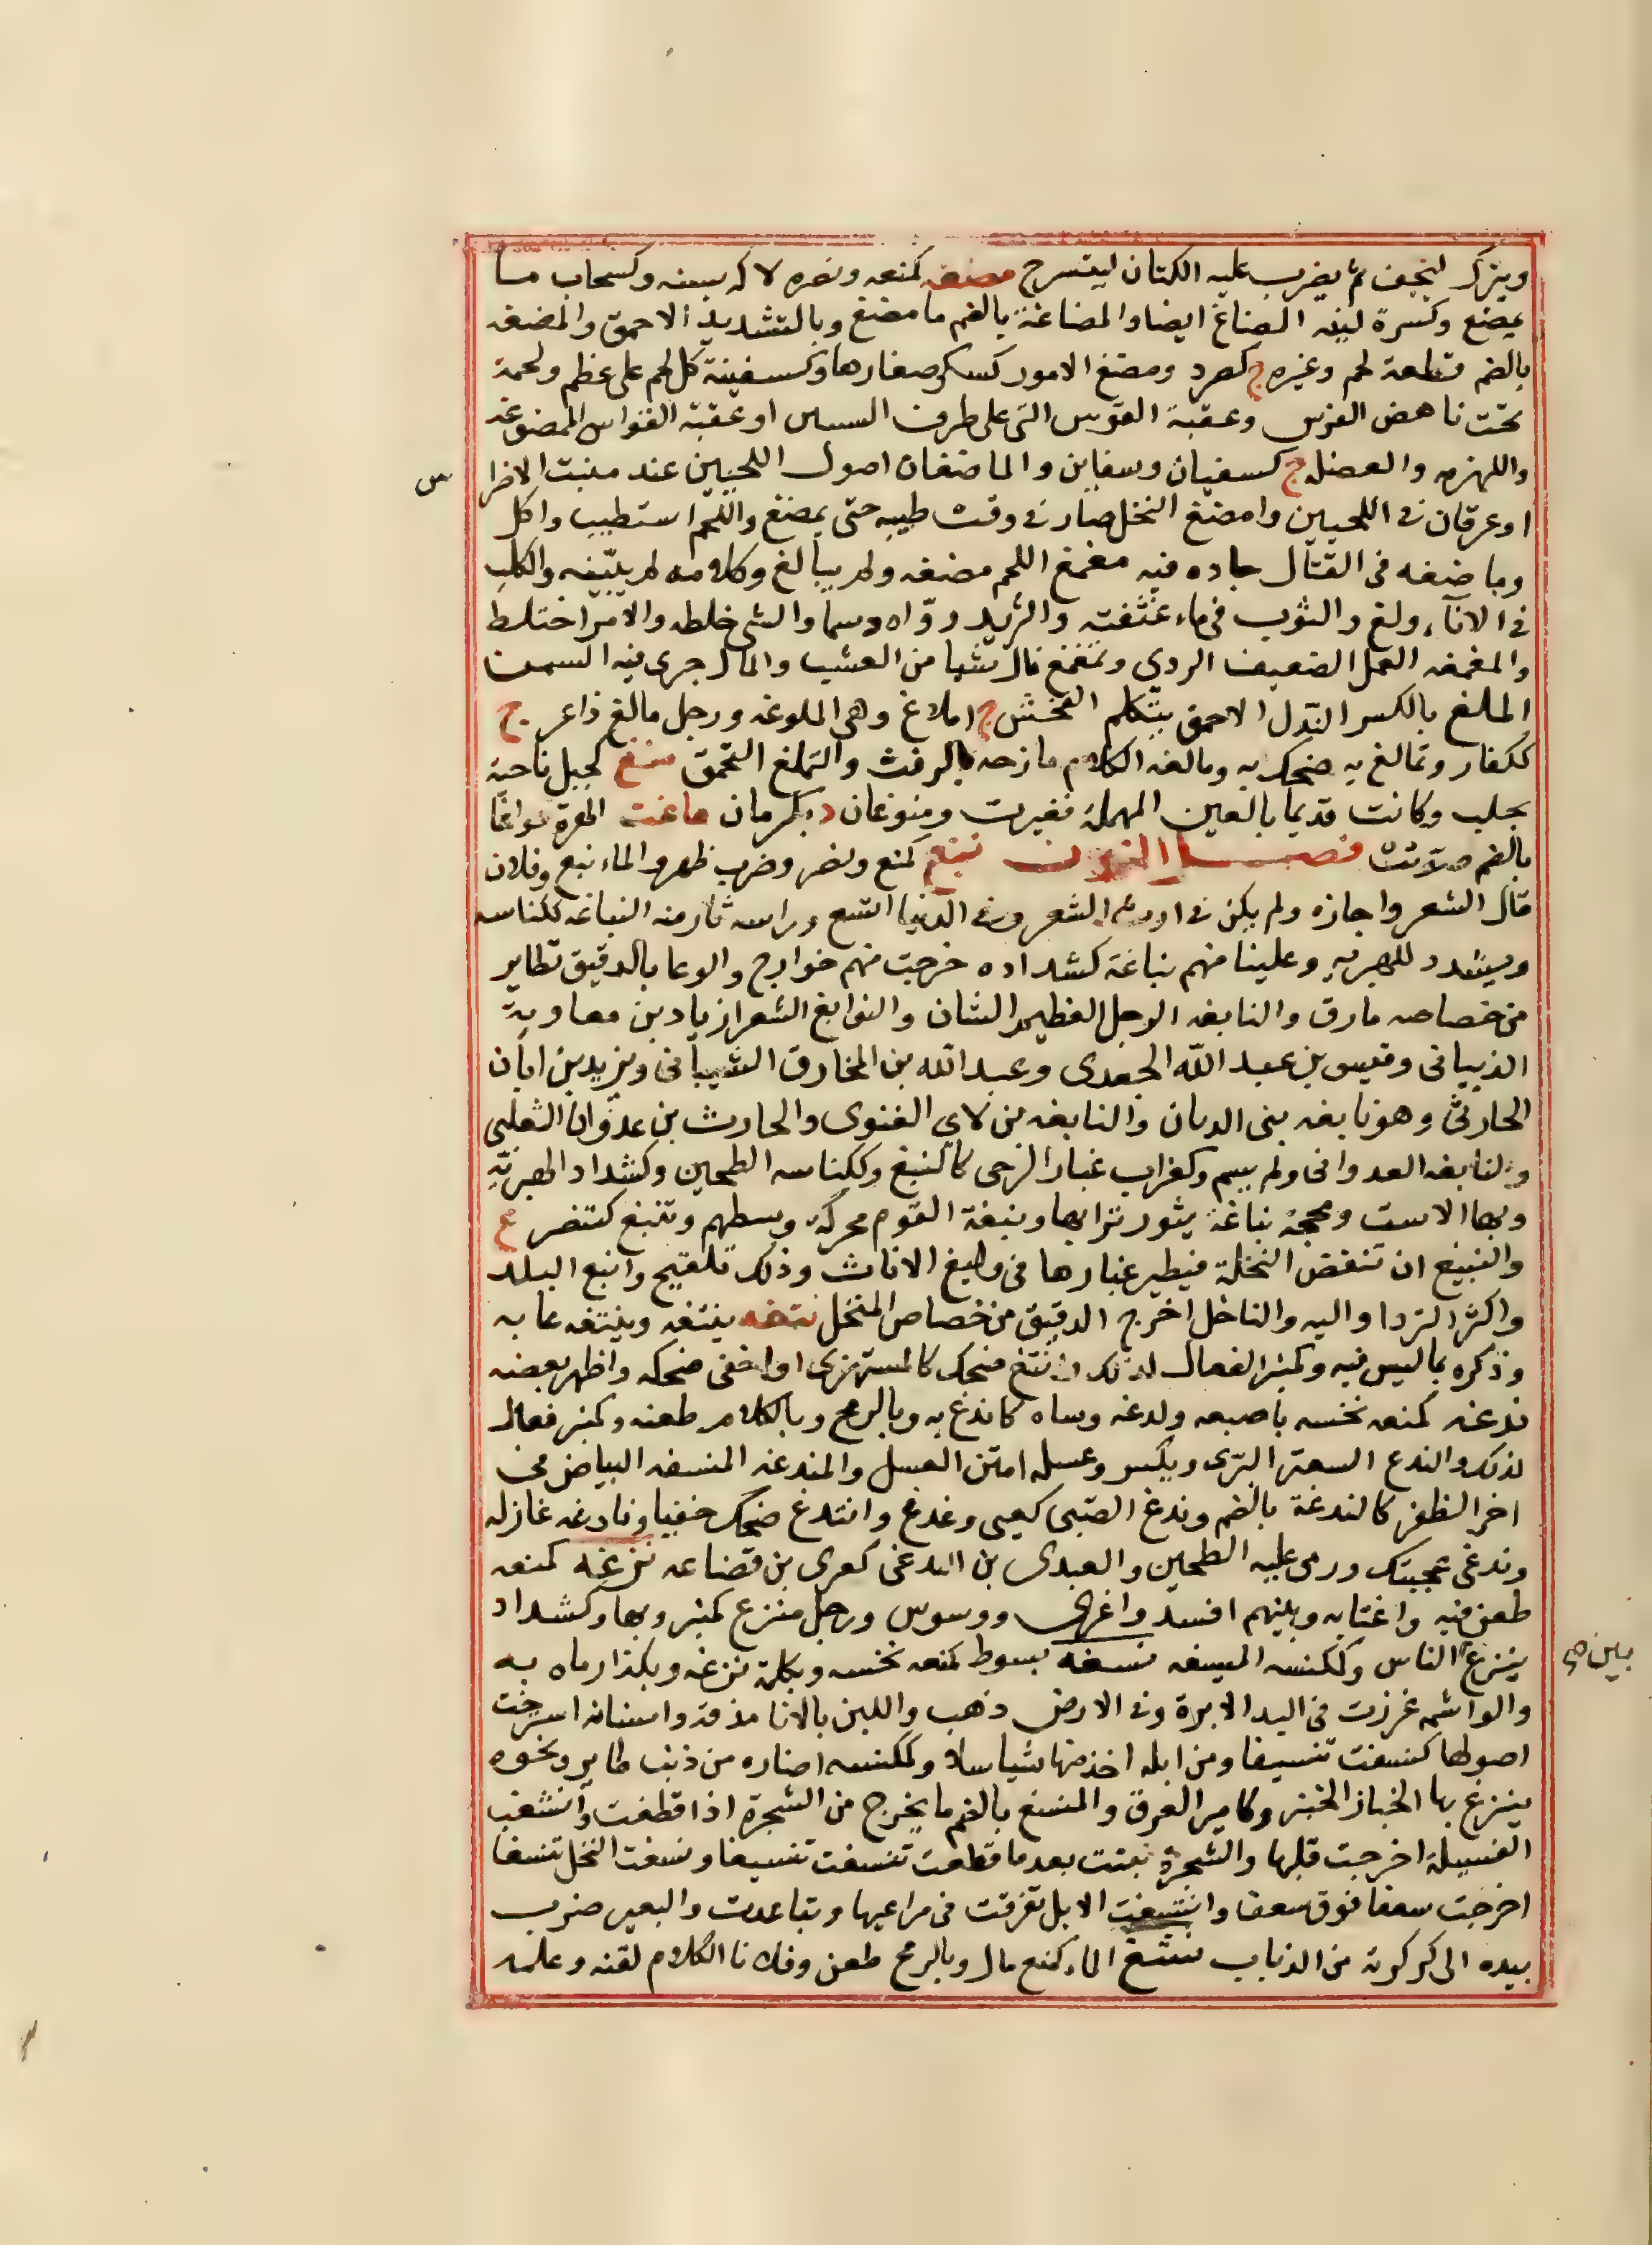 ويترك ليجف ثم يضرب عليه الكتان ليتسرح مضغه كمنعه ونصره لاكه بسنه وكسحاب ما
يمضغ وكسرة لينه المضاغ ايضا والمضاغة بالضم ما مضغ وبالتشديد الاحمق والمضغه
بالضم قطعة لحم وغيره ج كصرد ومضغ الامور كسكر صغارها وكسفينة كل لحم على عظم ولحمة
تحت ناهض الفرس وعقبة القوس التي على طرف السيتين او عقبة القواس الممضوغه
واللهزمه والعضله ج كسفيان وسفاين والماضغان اصول اللحيين عند منبت الاضرا س
او عرقان في اللحيين وامضغ النخل صار في وقت طيبه حتى يمضغ واللحم استطيب واكل
وماضغه في القتال جاده فيه مغمغ اللحم مضغه ولم يبالغ وكلامه لم يبينه والكلب
في الاناء ولغ والثوب في ماء غثغثه والثريد رواه دسما والشي خلطه والامر اختلط
والمغمغه العمل الضعيف الردي وتمغمغ نال شيا من العشب والمال جرى فيه السمن
الملغ بالكسر النذل الاحمق يتكلم الفحش ج املاغ وهي الملوغه ورجل مالغ ذاعر ج
ككفار وتمالغ به ضحك به ومالغه الكلام مازحه بالرفث والتملغ التحمق منغ كجبل ناحية
بحلب وكانت قديما بالعين المهملة فغيرت ومنوغان د بكرمان ماغت الهرة مواغا
بالضم صوتت فصل النون نبغ كمنع ونصر وضرب ظهر والماء نبع وفلان
قال الشعر واجازه ولم يكن في ارث الشعر وفي الدنيا اتسع وراسه ثار منه النباغه ككناسه
ويشدد للهبريه وعلينا منهم نباغة كشداده خرجت منهم خوارج والوعا بالدقيق تطاير
من خصاصه مارق والنابغه الرجل العظيم الشان والنوابغ الشعرا زياد بن معاوية
الذبياني وقيس بن عبد الله الجعدي وعبد الله بن المخارق الشيباني ويزيد بن ابان
الحارثي وهو نابغه بني الديان والنابغه بن لاي الغنوي والحارث بن عدوان الثعلبي
والنابغه العدواني ولم يسم وكغراب غبار الرحى كالنبغ وككناسه الطحين وكشداد الهبرية
وبها الاست ومحجة نباغة يثور ترابها ونبغة القوم محركة وسطهم وتنبغ كتنصر ع
والتنبيغ ان تنفض النخلة فيطير غبارها في وليغ الاناث وذلك تلقيح وانبغ البلد
واكثر التردا واليه والناخل اخرج الدقيق من خصاص المنخل نتغه ينتغه وينتغه عابه
وذكره بما ليس فيه وكمنبر الفعال لذلك وانتغ ضحك كالمستهزي او اخفى ضحكه واظهر بعضه
ندغه كمنعه نخسه باصبعه ولدغه وساه كاندغ به وبالرمح وبالكلام طعنه وكمنبر فعال
لذلك والندغ السعتر البري ويكسر وعسله امتن العسل والمندغه المنسغه البياض في
اخر الظفر كالندغة بالضم وندغ الصبي كعني وغدغ وانتدغ ضحك خفيا ونادغه غازله
وندغي عجينتك ورمى عليه الطحين والعبدي بن الندغي كعربي بن قضاعه نزغه كمنعه
طعن فيه واغتابه وبينهم افسد واغرى ووسوس ورجل منزغ كمنبر وبها وكشداد
ينزغ الناس وككنسه المنسغه نسغه بسوط كمنعه نخسه وبكلمة نزغه وبكذا رماه به
بين صح
والواشمه غرزت في اليد الابرة وفي الارض ذهب واللبن بالانا مذقه واسنانه استرخت
اصولها كنسغت تنسيغا ومن ابله اخذ منها شيا سلا وككنسه اضباره من ذنب طاير ونحوه
ينزغ بها الخباز الخبز وكامير العرق والنسغ بالضم ما يخرج من الشجرة اذا قطعت وانسغت
الفسيلة اخرجت قلبها والشجرة نبتت بعد ما قطعت كنسغت تنسيغا ونسغت النخل تنسغا
اخرجت سعفا فوق سعف وانتسغت الابل تفرقت في مراعيها وتباعدت والبعير ضرب
بيده الى كركرته من الذباب نشغ الماء كمنع سال وبالرمح طعن وفلانا الكلام لقنه وعلمه